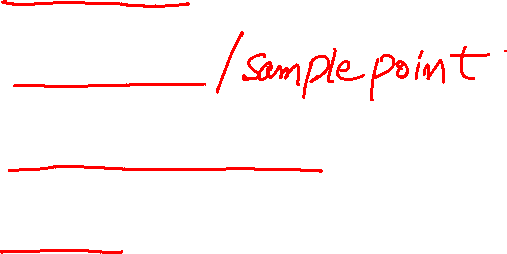 /sample point